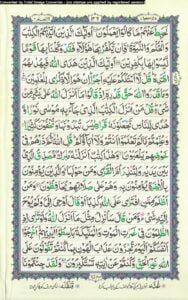 Converted by Total Image Converter - (no stamps are applied by registered version)
لَحَبِطَ عَنْهُمْ مَّا كَانُوْا يَعْمَلُوْنَ اُولٰٓئِكَ الَّذِيْنَ اٰتَيْنٰهُمُ الْكِتٰبَ
وَالْحُكْمَ وَالنُّبُوَّةَ فَاِنْ يَّكْفُرْ بِهَا هٰٓؤُلَآءِ فَقَدْ وَكَّلْنَا بِهَا قَوْمًا
لَّيْسُوْا بِهَا بِكٰفِرِيْنَ اُولٰٓئِكَ الَّذِيْنَ هَدَى اللّٰهُ فَبِهُدٰىهُمُ
اقْتَدِهْ قُلْ لَّآ اَسْئَلُكُمْ عَلَيْهِ اَجْرًا اِنْ هُوَ اِلَّا ذِكْرٰى لِلْعٰلَمِيْنَ
وَمَا قَدَرُوا اللّٰهَ حَقَّ قَدْرِهٖٓ اِذْ قَالُوْا مَآ اَنْزَلَ اللّٰهُ عَلٰى بَشَرٍ
مِّنْ شَيْءٍ قُلْ مَنْ اَنْزَلَ الْكِتٰبَ الَّذِيْ جَآءَ بِهٖ مُوْسٰى نُوْرًا وَّ
هُدًى لِّلنَّاسِ تَجْعَلُوْنَهٗ قَرَاطِيْسَ تُبْدُوْنَهَا وَتُخْفُوْنَ كَثِيْرًا
وَعُلِّمْتُمْ مَّا لَمْ تَعْلَمُوْٓا اَنْتُمْ وَلَآ اٰبَآؤُكُمْ قُلِ اللّٰهُ ثُمَّ ذَرْهُمْ فِيْ
خَوْضِهِمْ يَلْعَبُوْنَ وَهٰذَا كِتٰبٌ اَنْزَلْنٰهُ مُبٰرَكٌ مُّصَدِّقُ الَّذِيْ
بَيْنَ يَدَيْهِ وَلِتُنْذِرَ اُمَّ الْقُرٰى وَمَنْ حَوْلَهَا وَالَّذِيْنَ يُؤْمِنُوْنَ
بِالْاٰخِرَةِ يُؤْمِنُوْنَ بِهٖ وَهُمْ عَلٰى صَلَاتِهِمْ يُحَافِظُوْنَ وَمَنْ
اَظْلَمُ مِمَّنِ افْتَرٰى عَلَى اللّٰهِ كَذِبًا اَوْ قَالَ اُوْحِيَ اِلَيَّ وَلَمْ
يُوْحَ اِلَيْهِ شَيْءٌ وَّمَنْ قَالَ سَاُنْزِلُ مِثْلَ مَآ اَنْزَلَ اللّٰهُ وَلَوْ تَرٰٓى
اِذِ الظّٰلِمُوْنَ فِيْ غَمَرٰتِ الْمَوْتِ وَالْمَلٰٓئِكَةُ بَاسِطُوْٓا اَيْدِيْهِمْ
اَخْرِجُوْٓا اَنْفُسَكُمْ اَلْيَوْمَ تُجْزَوْنَ عَذَابَ الْهُوْنِ بِمَا كُنْتُمْ تَقُوْلُوْنَ عَلَى
اللّٰهِ غَيْرَ الْحَقِّ وَكُنْتُمْ عَنْ اٰيٰتِهٖ تَسْتَكْبِرُوْنَ وَلَقَدْ